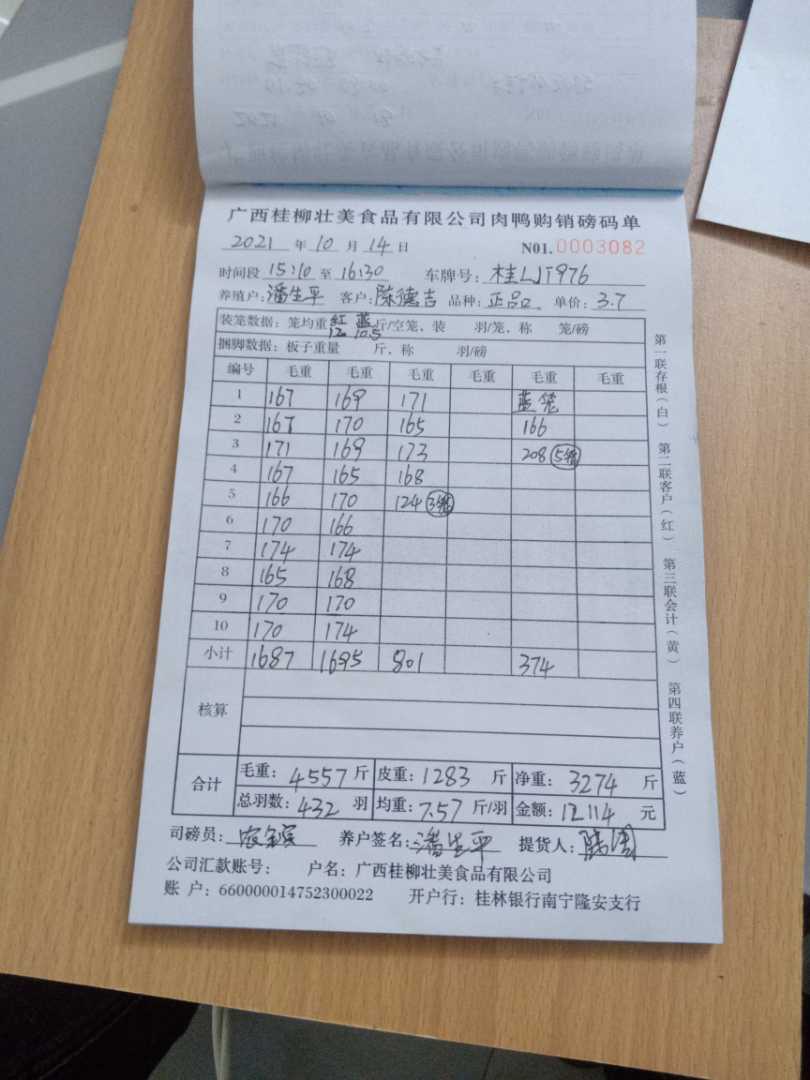 广西桂柳壮美食品有限公司肉鸭购销磅码单
2021 年 10 月 14 日 N01. 0003082
时间段 15:10 至 16:30 车牌号: 桂LJT976
养殖户: 潘生平 客户: 陈德吉 品种: 正品 单价: 3.7
装笼数据: 笼均重 红 12 蓝 10.5 斤/空笼、装 羽/笼、称 笼/磅
捆脚数据: 板子重量 斤、称 羽/磅
编号 毛重 毛重 毛重 毛重 毛重 毛重
1 167 169 171 蓝笼
2 167 170 165 166
3 171 169 173 208 5
4 167 165 168
5 166 170 124 3
6 170 166
7 174 174
8 165 168
9 170 170
10 170 174
小计 1687 1695 801 374
核算
合计 毛重: 4557 斤 皮重: 1283 斤 净重: 3274 斤
总羽数: 432 羽 均重: 7.57 斤/羽 金额: 12114 元
司磅员: 养户签名: 潘生平 提货人:
公司汇款账号: 户名: 广西桂柳壮美食品有限公司
账 户: 660000014752300022 开户行: 桂林银行南宁隆安支行
第一联存根(白) 第二联客户(红) 第三联会计(黄) 第四联养户(蓝)